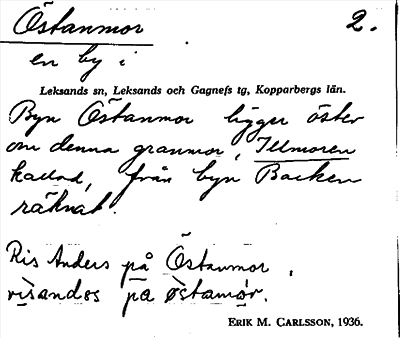 Östanmor 2.
en by i
Leksands sn, Leksands och Gagnefs tg, Kopparbergs län.
Byn Östanmor ligger öster
om denna granmor, Illmoren
kallad, från byn Backen
räknat.
Ris Anders på Östanmor,
rìsandəs pa ə̀stamọr.
ERIK M. CARLSSON, 1936.